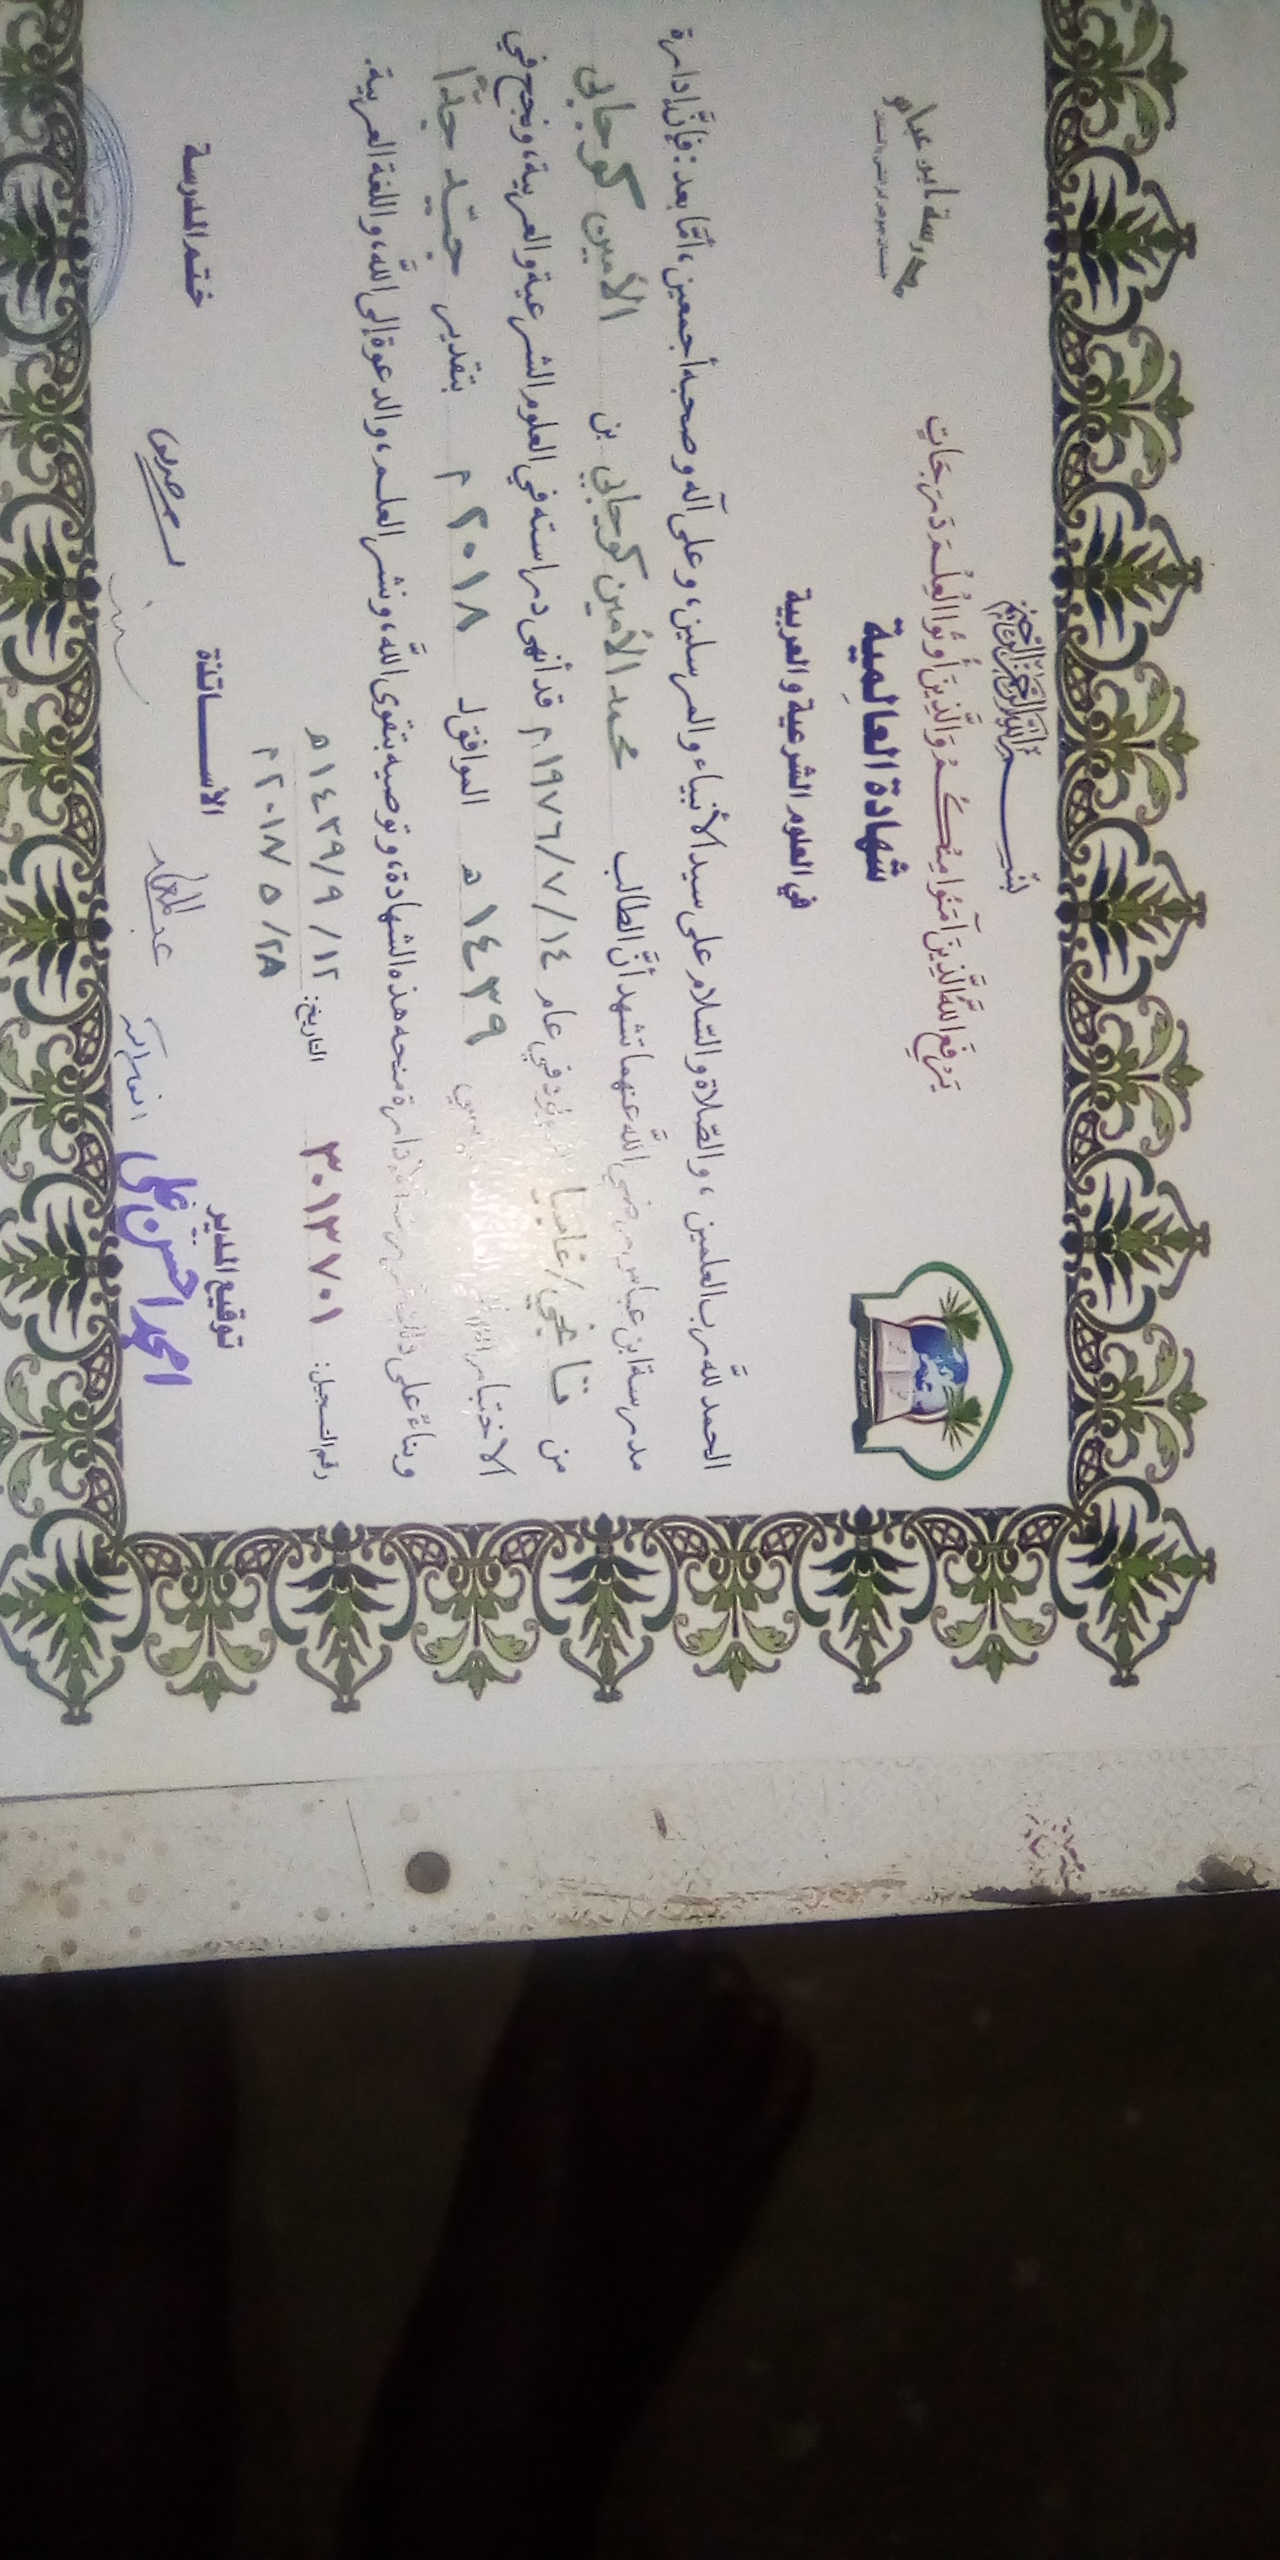 بسم الله الرحمن الرحيم
يَرْفَعِ اللَّهُ الَّذِينَ آمَنُوا مِنكُمْ وَالَّذِينَ أُوتُوا الْعِلْمَ دَرَجَاتٍ
مدرسة ابن عباس
شهادة العالِمية
في العلوم الشرعية والعربية
الحمد لله رب العلمين، والصّلاة والسّلام على سيد الأنبياء والمرسلين، وعلى آله وصحبه أجمعين، أمّا بعد: فإنّ إدارة
مدرسة ابن عباس رضي الله عنهما تشهد أنَّ الطالب محمد الأمين كوجابي بن الأمين كوجابي
من غامبيا في عام ١٤/٧/١٩٧٦م. قد أنهى دراسته في العلوم الشرعية والعربية، ونجح في
الاختبار ١٤٣٩ هـ الموافق لـ ٢٠١٨ م بتقدير جيّد جدًّا
وبناءً على ذلك منحه هذه الشهادة، وتوصيه بتقوى الله، ونشر العلم، والدعوة إلى الله، واللغة العربية.
رقم التسجيل: ٣٠١٣٧٠١ التاريخ: ١٢/٩/١٤٣٩ هـ
٢٨/٥/٢٠١٨ م
توقيع المدير الأســـاتذة ختم المدرسة